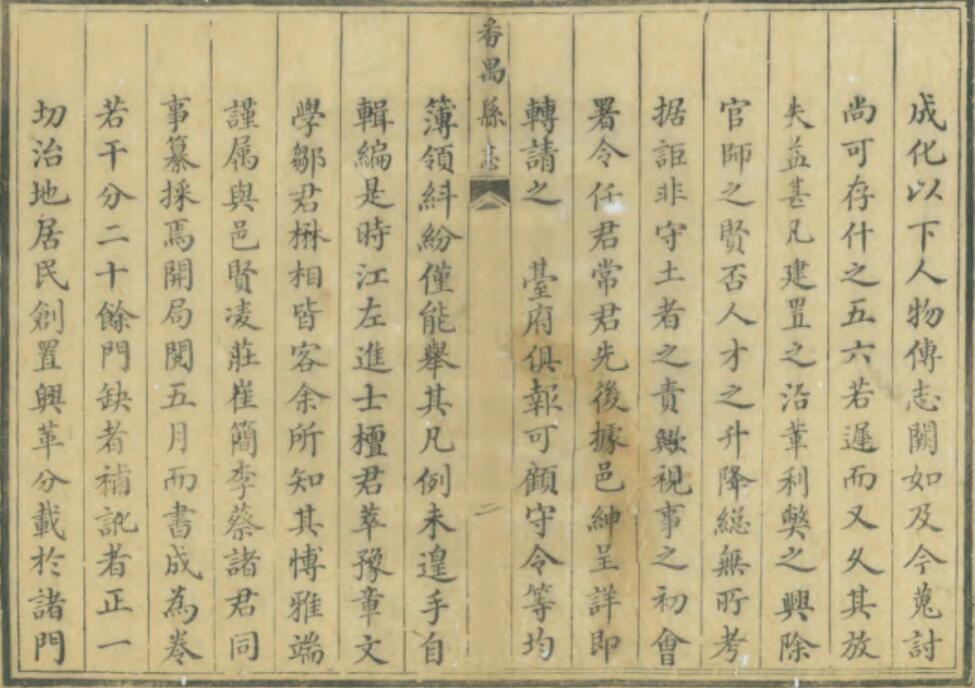 成化以下人物傳志闕如及今蒐討
尚可存什之五六若遲而又久其放
失益甚凡建置之沿革利弊之興除
官師之賢否人才之升降總無所考
据詎非守土者之責歟視事之初會
署令任君常君先後據邑紳呈詳即
轉請之 臺府俱報可顧守令等均
番禺縣 二
簿領糾紛僅能舉其凡例未遑手自
輯編是時江左進士檀君萃豫章文
學鄒君楙相皆客余所知其愽雅端
謹属與邑賢凌莊崔簡李蔡諸君同
事纂採焉開局閱五月而書成為卷
若干分二十餘門缺者補訛者正一
切治地居民創置興革分載於諸門